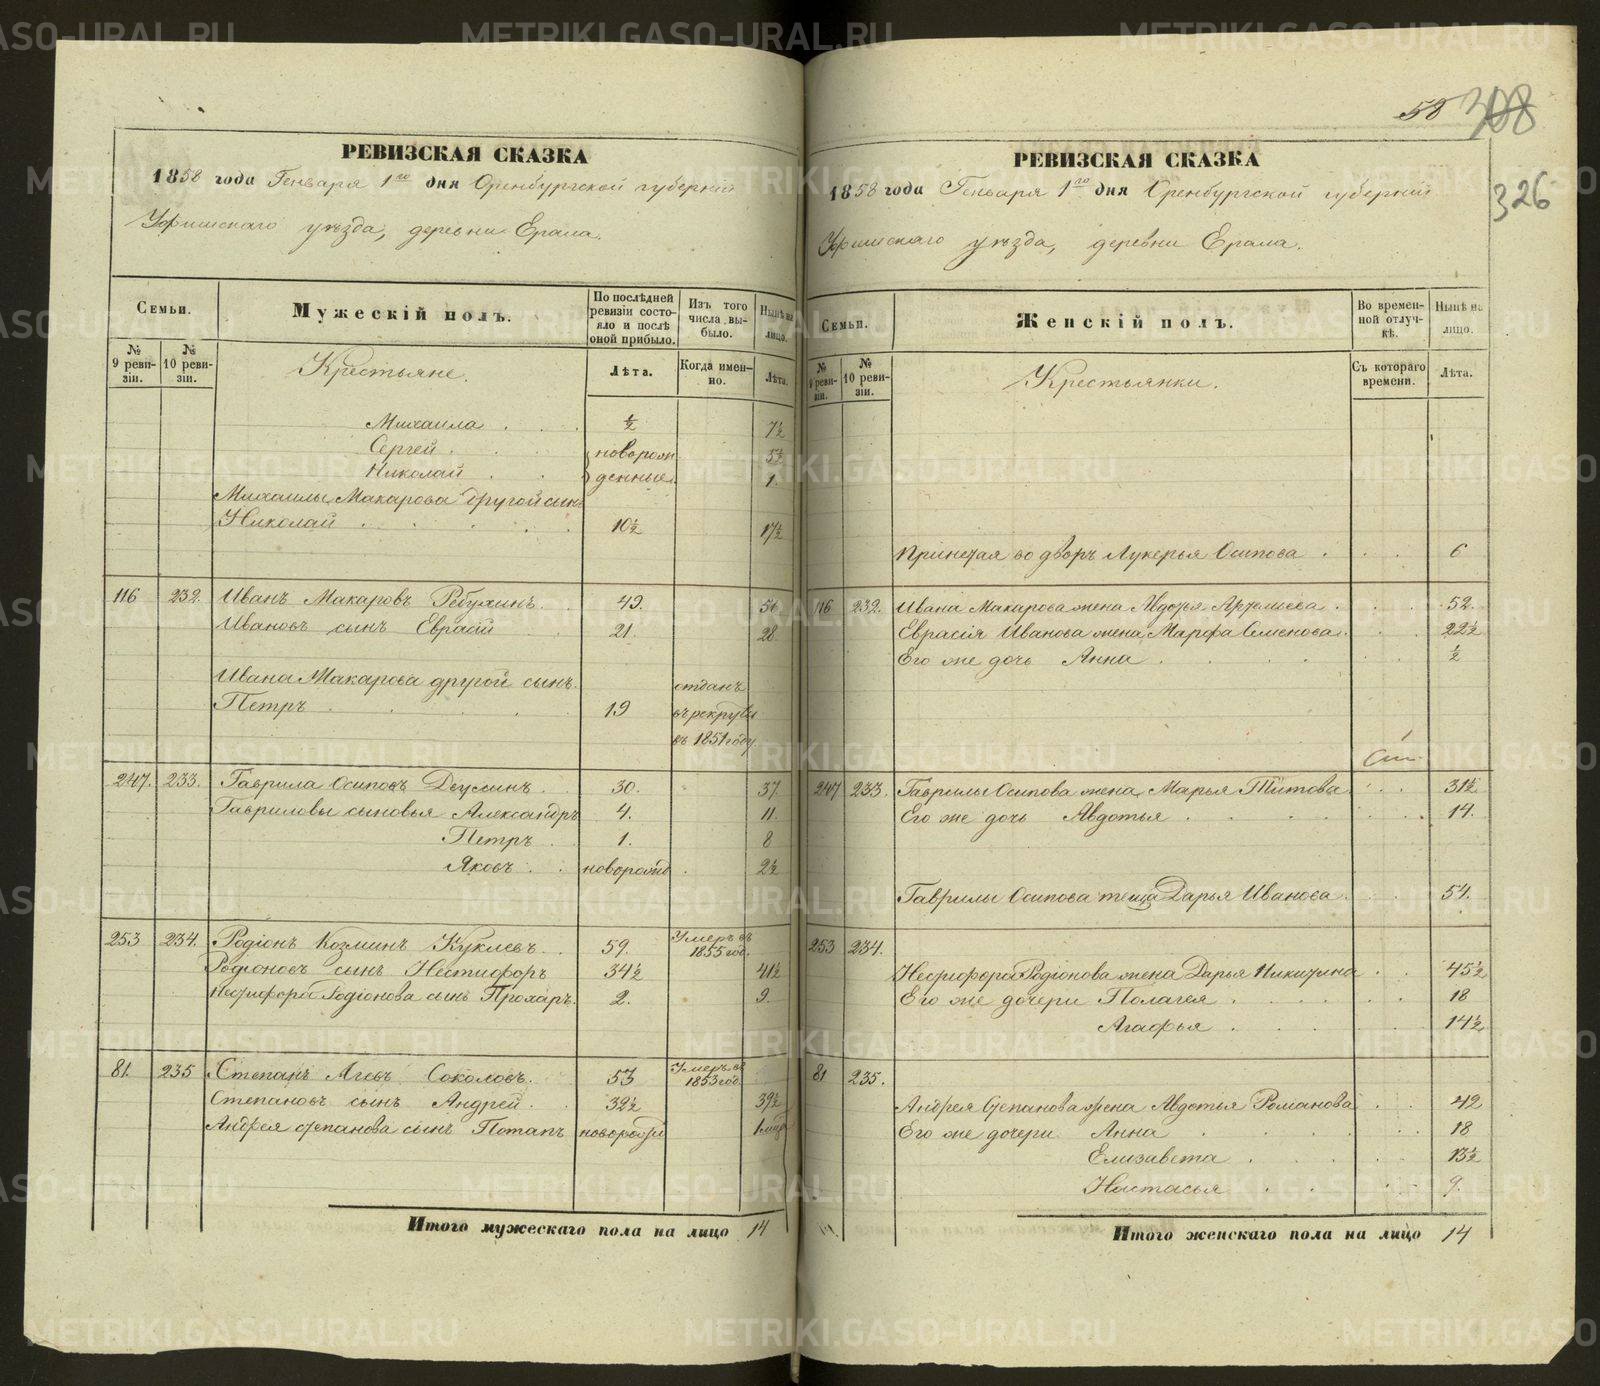 РЕВИЗСКАЯ СКАЗКА
1858 года Генваря 1го дня Оренбургской губернiи
Уфимскаго уѣзда, деревни Ерала.
Семьи.
Мужескiй полъ.
По послѣдней ревизiи состояло и послѣ оной прибыло.
Изъ того числа выбыло.
Нынѣ на лицо.
№ 9 ревизiи.
№ 10 ревизiи.
Крестьяне.
Лѣта.
Когда именно.
Лѣта.
Михаила ½ 7½
Сергей новорож 5½
Николай денные 1.
Михаилы Макарова другой сынъ
Николай 10½ 17½
116 232. Иванъ Макаровъ 49. 56
Ивановъ сынъ Еврасiй 21. 28
Ивана Макарова другой сынъ отданъ
Петръ 19 въ рекруты
въ 1851 году
247. 233. Гаврила Осиповъ 30. 37
Гавриловы сыновья Александръ 4. 11
Петръ 1. 8
Яковъ новорожд 2½
253 234. Родiонъ Козминъ Куклевъ 59. Умеръ въ 1855 год.
Родiоновъ сынъ Нестифоръ 34½ 41½
Родiонова сынъ Прохаръ 2. 9.
81. 235 Степанъ Агевъ Соколовъ. 53 Умеръ въ 1853 год.
Степановъ сынъ Андрей 32½ 39½
Андрея степанова сынъ Потапъ 1
Итого мужескаго пола на лицо 14
58 308
326
РЕВИЗСКАЯ СКАЗКА
1858 года Генваря 1го дня Оренбургской губернiи
Уфимскаго уѣзда, деревни Ерала.
Семьи.
Женскiй полъ.
Во временной отлучкѣ.
Нынѣ на лицо.
№ 9 ревизiи.
№ 10 ревизiи.
Крестьянки.
Съ котораго времени.
Лѣта.
во дворъ Лукерья Осипова 6
116 232. Ивана Макарова жена Авдотья 52.
Еврасiя Иванова жена Марфа Семенова 22½
Его же дочь Анна ½
247 233. Гаврилы Осипова жена Марья Титова 31½
Его же дочь Авдотья 14.
Гаврилы Осипова теща Дарья Иванова 54.
253 234.
Родiонова жена Дарья Никитина 45½
Его же дочери Полагея 18
Агафья 14½
81 235.
Андрея Степанова жена Авдотья Романова 42
Его же дочери Анна 18
Елизавета 13½
Настасья 9.
Итого женскаго пола на лицо 14
METRIKI.GASO-URAL.RU